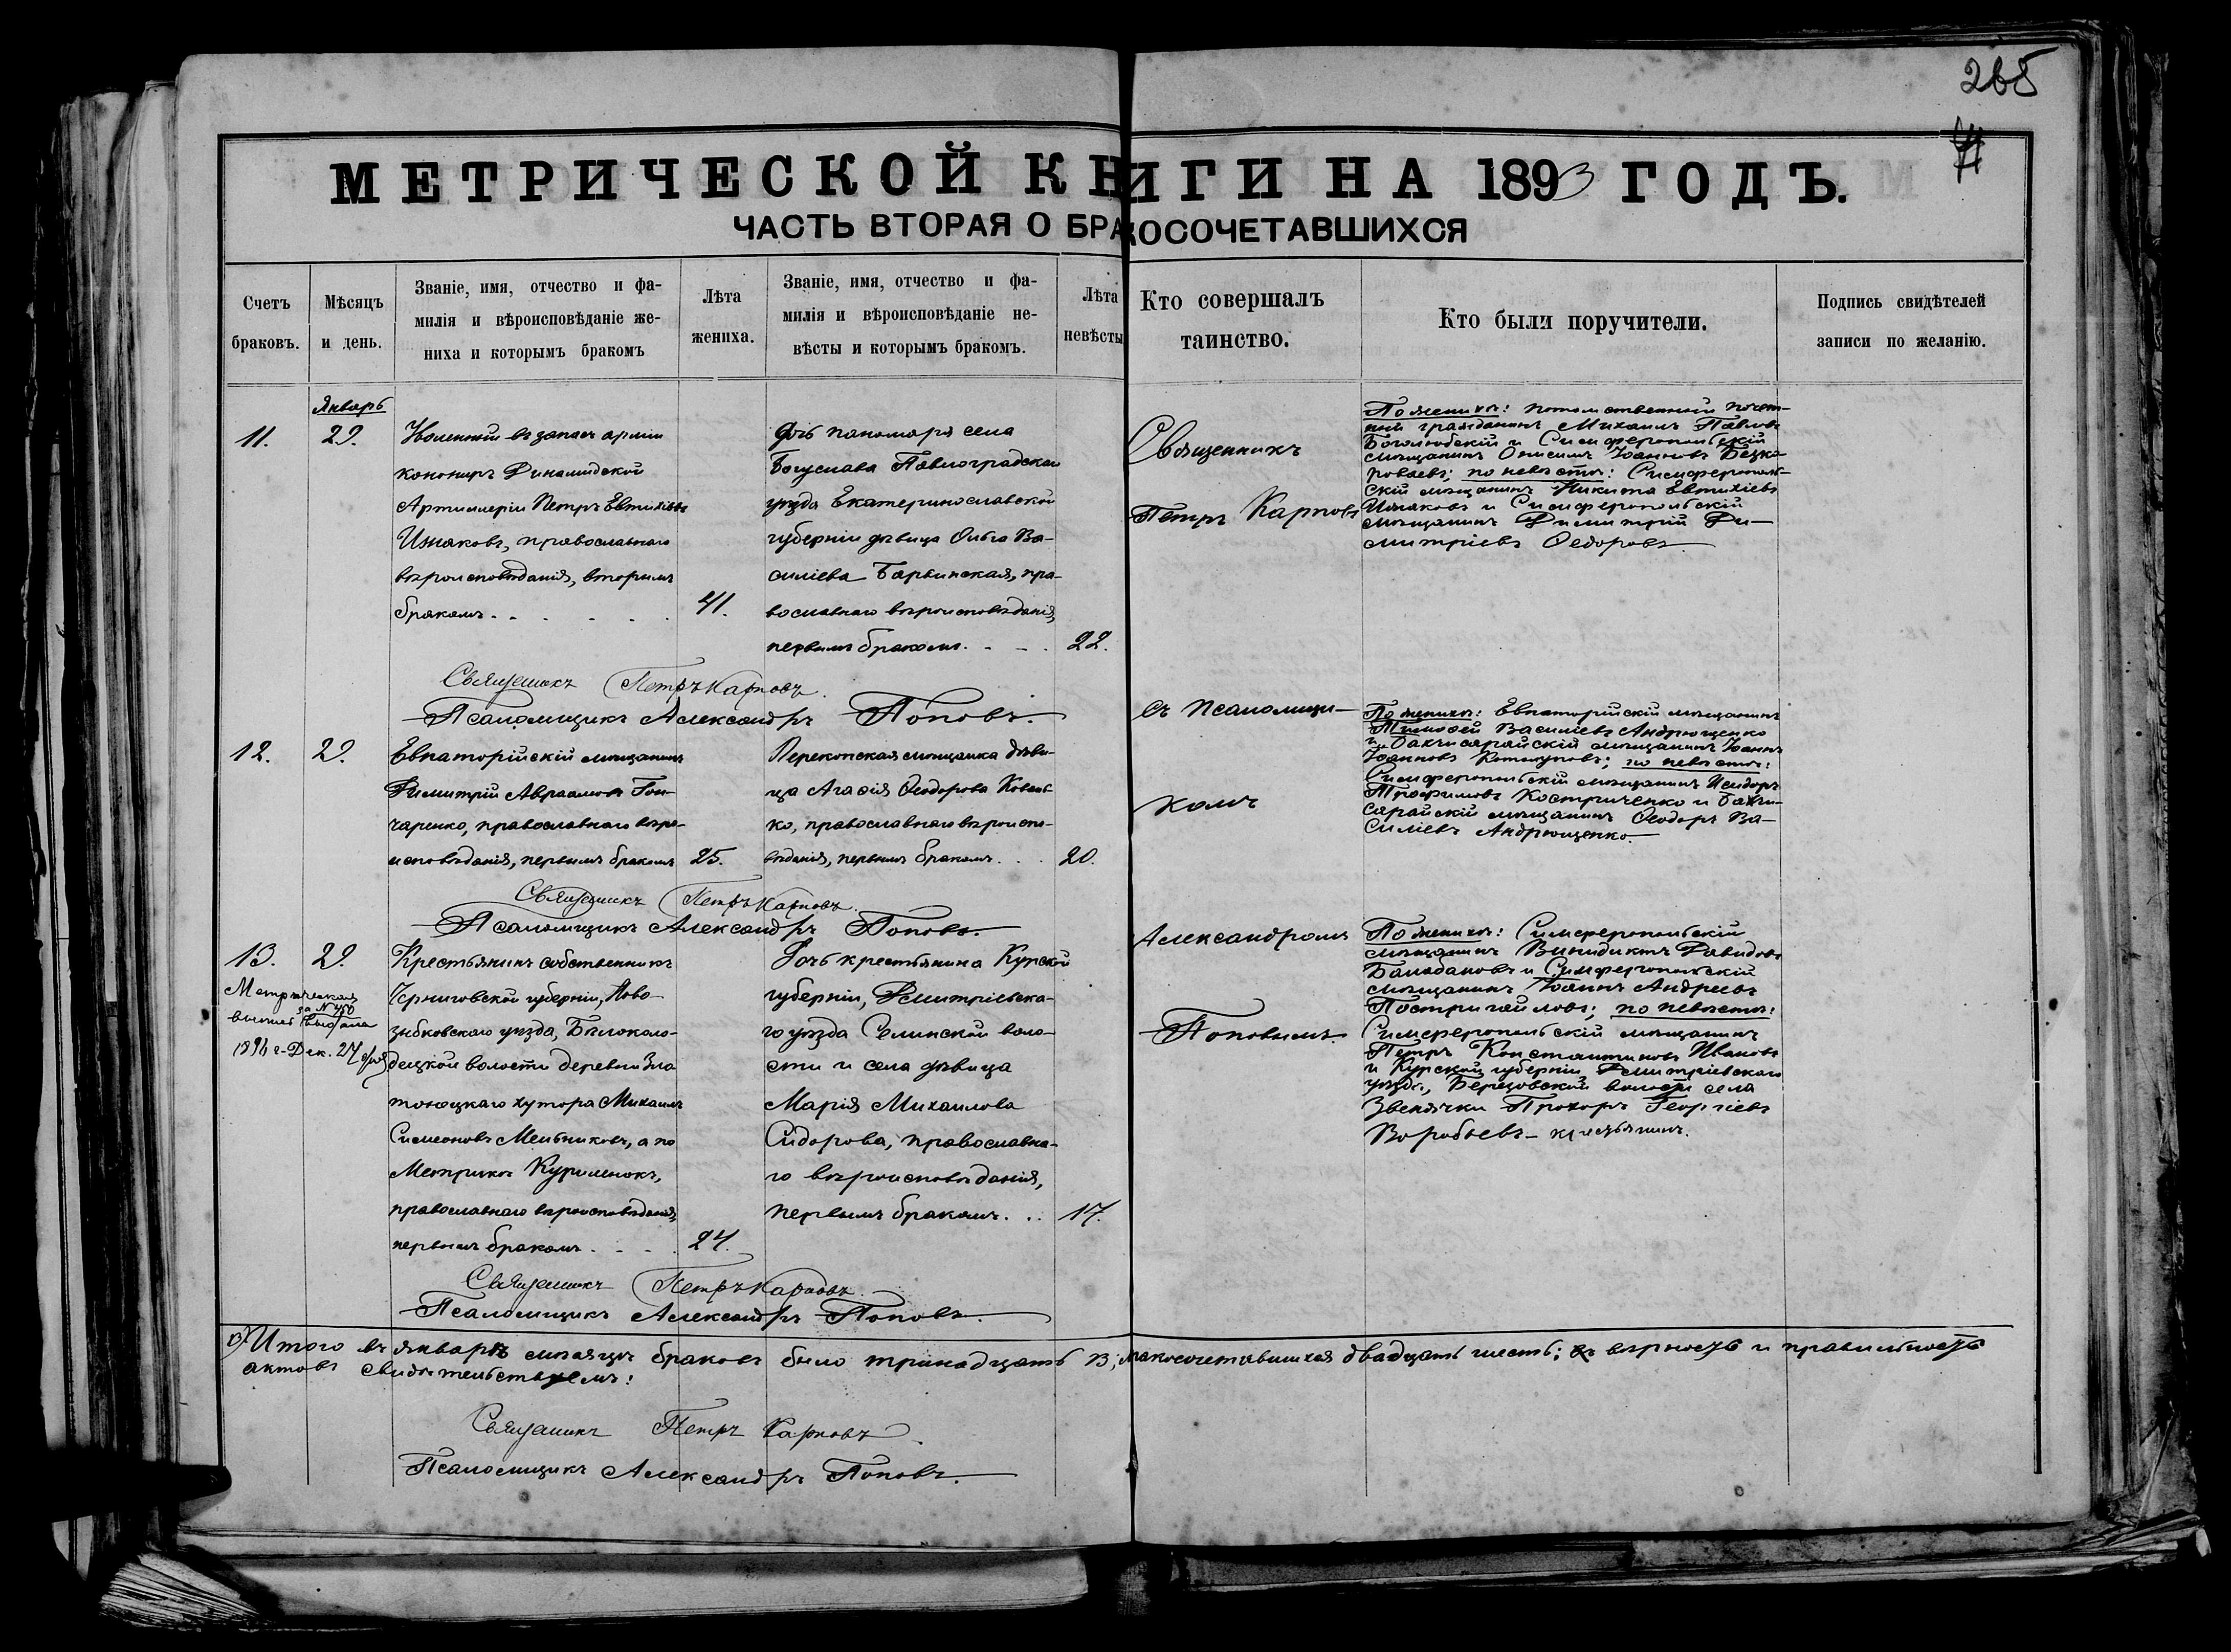 265
МЕТРИЧЕСКОЙ КНИГИ НА 1893 ГОДЪ.
ЧАСТЬ ВТОРАЯ О БРАКОСОЧЕТАВШИХСЯ
Счетъ браковъ.
Мѣсяцъ и день.
Званіе, имя, отчество и фа-
милія и вѣроисповѣданіе же-
ниха и которымъ бракомъ
Лѣта жениха.
Званіе, имя, отчество и фа-
милія и вѣроисповѣданіе не-
вѣсты и которымъ бракомъ.
Лѣта невѣсты
Кто совершалъ
таинство.
Кто были поручители.
Подпись свидѣтелей
записи по желанію.
Январь
11.
29.
въ запасъ арміи
канониръ Динамидской
Артиллеріи Петръ Евтихіевъ
Ижаковъ, православнаго
вѣроисповѣданія, вторымъ
бракомъ
41.
Дочь пономаря села
Богуслава Павлоградскаго
уѣзда Екатеринославской
губерніи дѣвица Ольга Ва-
силіева Барвинская, пра-
вославнаго вѣроисповѣданія,
первымъ бракомъ
22.
Священникъ
Петръ Карповъ
По женихѣ: потомственный почет-
ный гражданинъ Михаилъ Павловъ
Боголюбскій и Симферопольскій
мѣщанинъ Онисимъ Іоанновъ
по невѣстѣ: Симферополь-
скій мѣщанинъ Никита Евтихіевъ
Ижаковъ и Симферопольскій
мѣщанинъ Димитрій Ди-
митріевъ Ѳедоровъ.
Священникъ Петръ Карповъ.
Псаломщикъ Александръ Поповъ.
12.
29.
Евпаторійскій мѣщанинъ
Димитрій Авраамовъ Гон-
чаренко, православнаго вѣро-
исповѣданія, первымъ бракомъ
25.
Перекопская мѣщанка дѣви-
ца Агаѳія Ѳеодорова Коваль-
ко, православнаго вѣроиспо-
вѣданія, первымъ бракомъ
20.
съ Псаломщи-
комъ
По женихѣ: Евпаторійскій мѣщанинъ
Тимоѳей Василіевъ Андрющенко
и Бахчисарайскій мѣщанинъ Іоаннъ
Іоанновъ по невѣстѣ:
Симферопольскій мѣщанинъ Исидоръ
Трофимовъ Костриченко и Бахчи-
сарайскій мѣщанинъ Ѳеодоръ Ва-
силіевъ Андрющенко.
Священникъ Петръ Карповъ.
Псаломщикъ Александръ Поповъ.
13.
29.
Метрическая
за № 450
выпись выдана
1896 г. Дек. 27 дня
Крестьянинъ собственникъ
Черниговской губерніи, Ново-
зыбковскаго уѣзда, Бѣлоколо-
децкой волости деревни Зла
хутора Михаилъ
Симеоновъ Мельниковъ, а по
Метрикѣ Куриленокъ,
православнаго вѣроисповѣданія,
первымъ бракомъ
24.
Дочь крестьянина Курской
губерніи, Дмитріевска-
го уѣзда Селинской воло-
сти и села дѣвица
Марія Михаилова
Сидорова, православна-
го вѣроисповѣданія,
первымъ бракомъ
17.
Александромъ
Поповымъ.
По женихѣ: Симферопольскій
мѣщанинъ Винидиктъ Давидовъ
Балабановъ и Симферопольскій
мѣщанинъ Іоаннъ Андреевъ
Постригайловъ; по невѣстѣ:
Симферопольскій мѣщанинъ
Петръ Константиновъ Ивановъ
и Курской губерніи Дмитріевскаго
уѣзда, Березовской волости села
Звенячки Прохоръ Георгіевъ
Воробьевъ - крестьянинъ.
Священникъ Петръ Карповъ.
Псаломщикъ Александръ Поповъ.
Итого въ январѣ мѣсяцѣ браковъ было тринадцать 13; бракосочетавшихся двадцать шесть; вѣрность и правильность
актовъ свидѣтельствуемъ:
Священникъ Петръ Карповъ.
Псаломщикъ Александръ Поповъ.